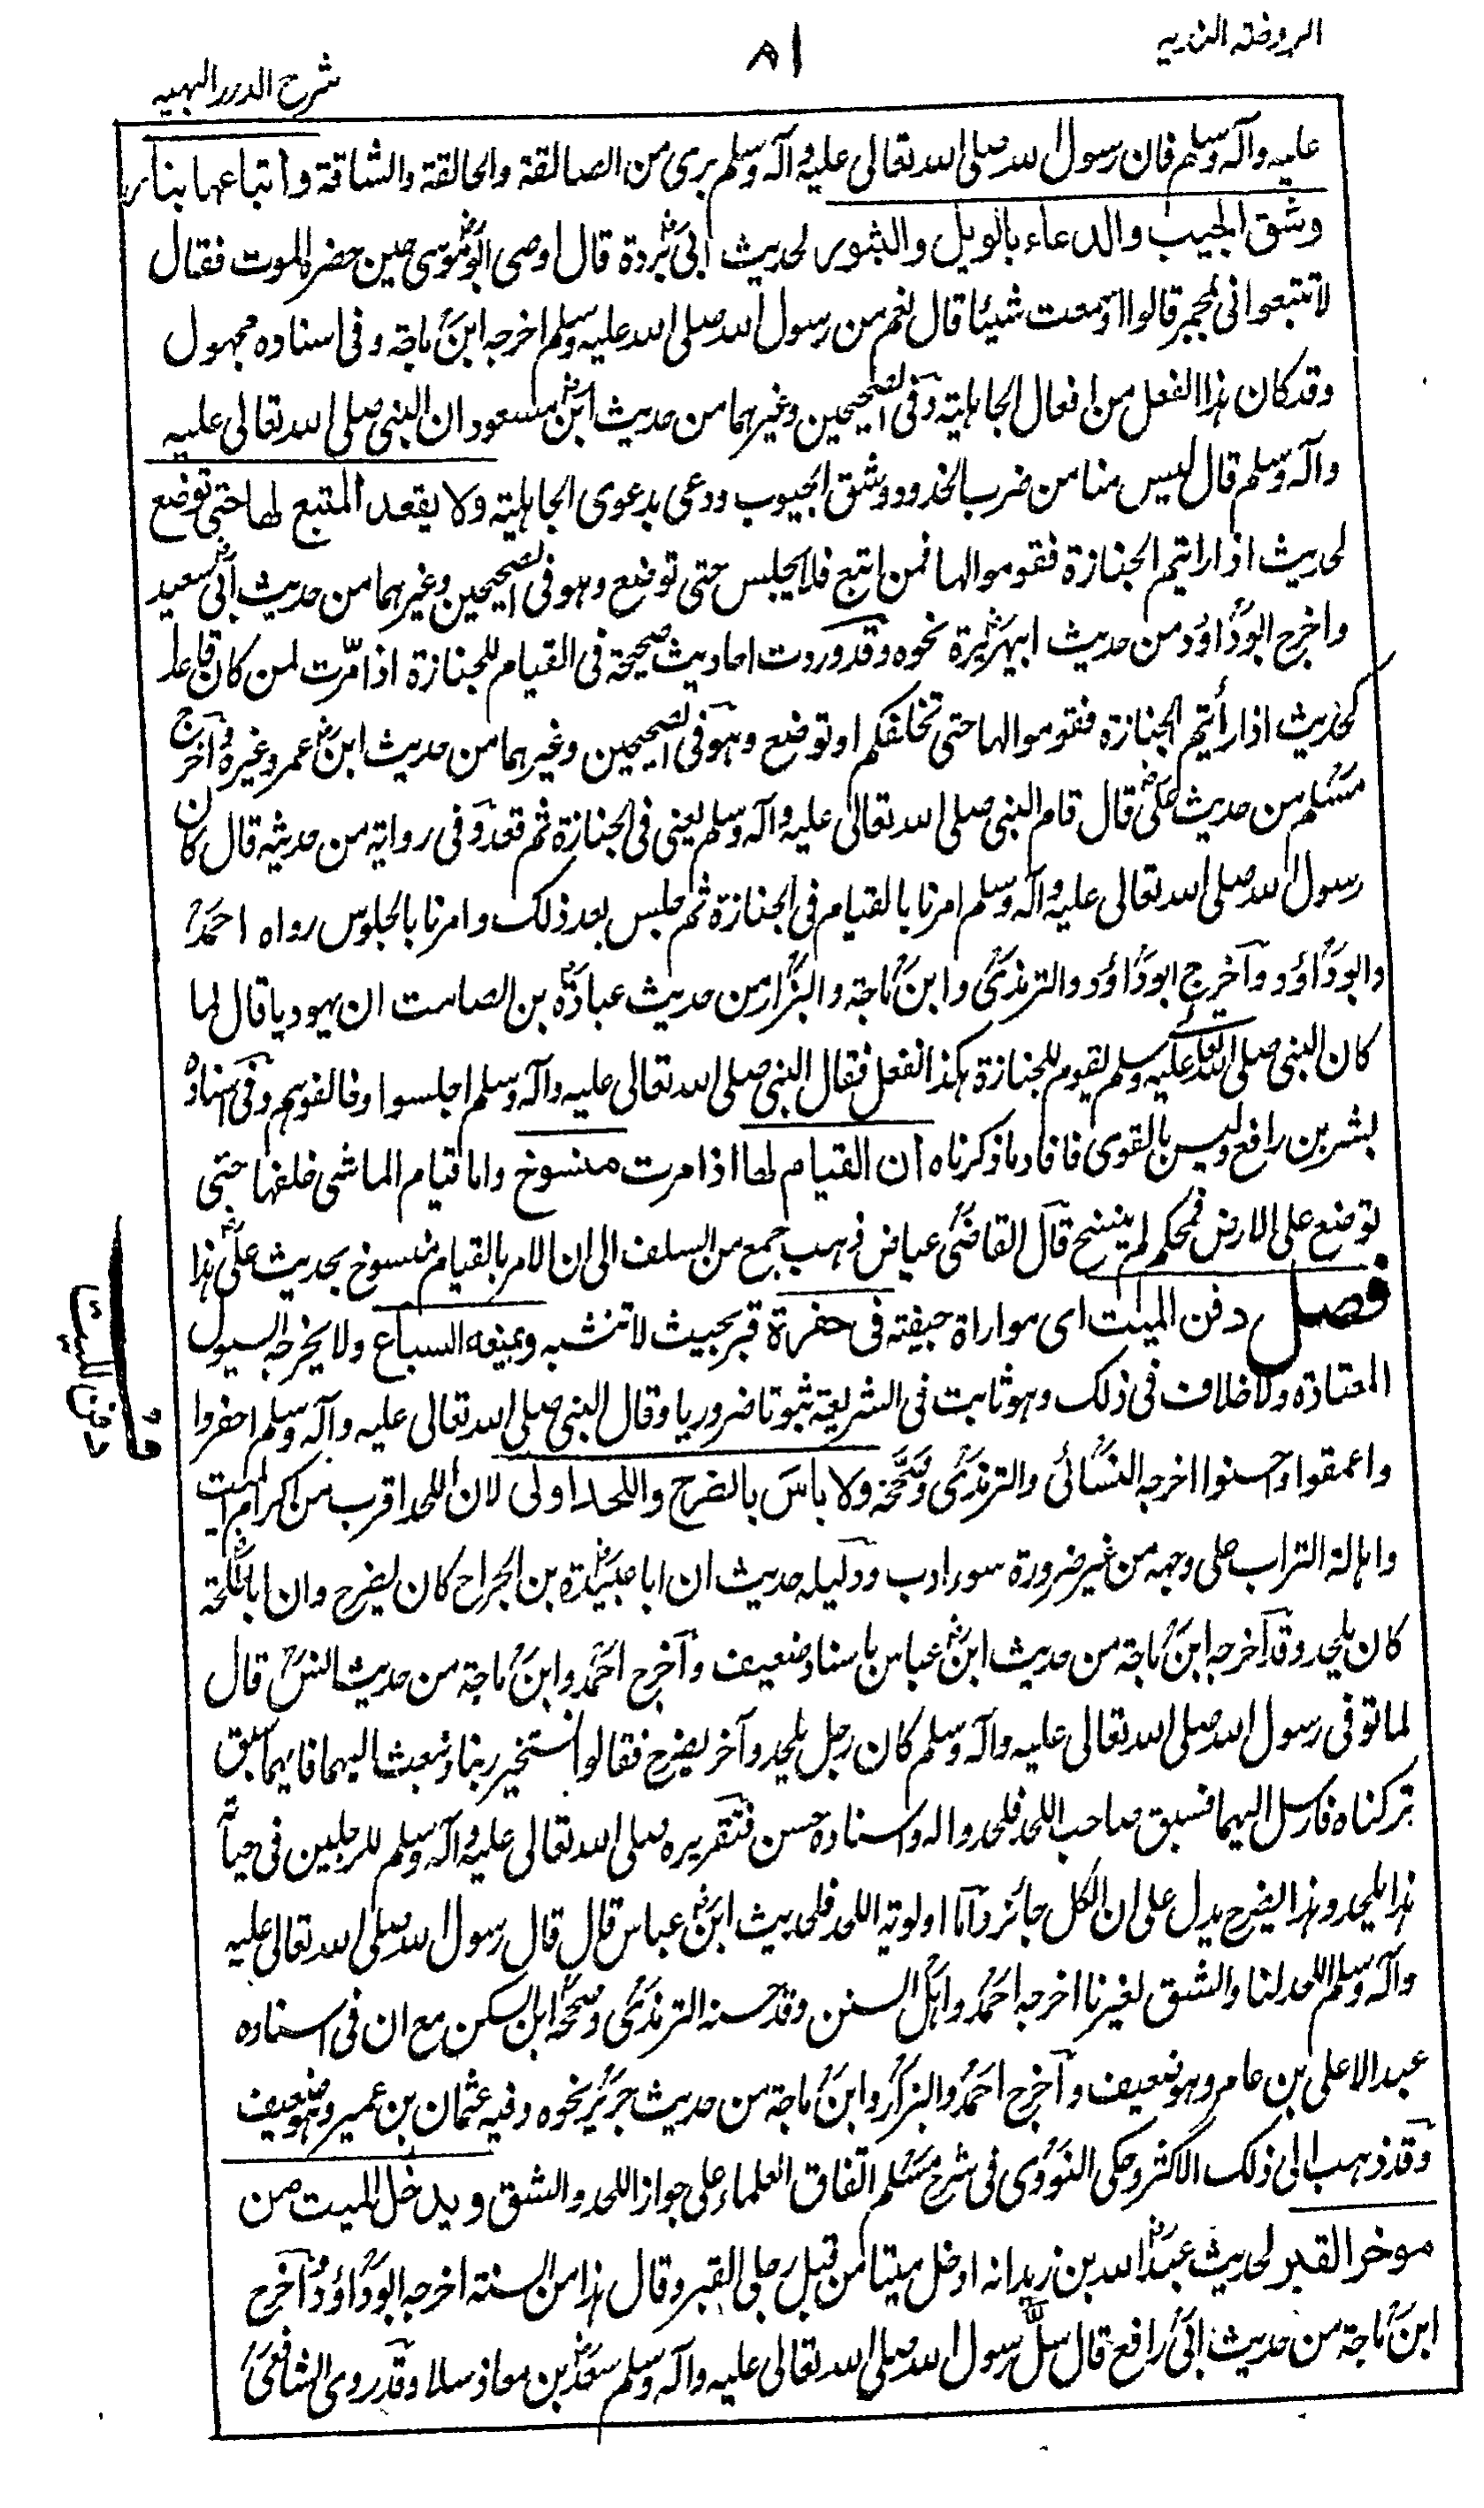 الروضة الندية
٨١
شرح الدرر البهية
عليه وآله وسلم فان رسول الله صلى الله تعالى عليه وآله وسلم برئ من الصالقة والحالقة والشاقة واتباعها بنار
وشق الجيب والدعاء بالويل والثبور لحديث ابي بردة قال اوصى ابو موسى حين حضره الموت فقال
لا تتبعوني بمجمر قالوا أوسمعت شيئا قال نعم من رسول الله صلى الله عليه وسلم اخرجه ابن ماجة وفى اسناده مجهول
وقد كان هذا الفعل من افعال الجاهلية وفى الصحيحين وغيرهما من حديث ابن مسعود ان النبى صلى الله تعالى عليه
وآله وسلم قال ليس منا من ضرب الخدود وشق الجيوب ودعى بدعوى الجاهلية ولا يقعد المتبع لها حتى توضع
لحديث اذا رايتم الجنازة فقوموا لها فمن اتبع فلا يجلس حتى توضع وهو فى الصحيحين وغيرهما من حديث ابي سعيد
واخرج ابو داؤد من حديث ابيهريرة نحوه وقد وردت احاديث صحيحة فى القيام للجنازة اذا مرّت لمن كان قاعدا
كحديث اذا رأيتم الجنازة فقوموا لها حتى تخلفكم او توضع وهو فى الصحيحين وغيرهما من حديث ابن عمر وغيره واخرج
مسلم من حديث على قال قام النبى صلى الله تعالى عليه وآله وسلم يعنى فى الجنازة ثم قعد وفى رواية من حديثه قال كان
رسول الله صلى الله تعالى عليه وآله وسلم امرنا بالقيام فى الجنازة ثم جلس بعد ذلك وامرنا بالجلوس رواه احمد
وابو داؤد وآخرج ابو داؤد والترمذى وابن ماجة والبزار من حديث عبادة بن الصامت ان يهوديا قال لما
كان النبى صلى الله تعالى عليه وسلم يقوم للجنازة هكذا نفعل فقال النبى صلى الله تعالى عليه وآله وسلم اجلسوا وخالفوهم وفى اسناده
بشر بن رافع وليس بالقوى فافاد ما ذكرناه ان القيام لها اذا مرت منسوخ واما قيام الماشى خلفها حتى
توضع على الارض فمحكم لم ينسخ قال القاضى عياض ذهب جمع من السلف الى ان الامر بالقيام منسوخ بحديث على هذا
فصل دفن الميت اى مواراة جيفته فى حفرة قبر بحيث لا تنشبه ويمنعه السباع ولا يخرجه السيول
المعتادة ولا خلاف فى ذلك وهو ثابت فى الشريعة ثبوتا ضروريا وقال النبى صلى الله تعالى عليه وآله وسلم احفروا
واعمقوا واحسنوا اخرجه النسائى والترمذى وصححه ولا باس بالضرح واللحد اولى لان اللحد اقرب من اكرام الميت
واهالة التراب على وجهه من غير ضرورة سوء ادب ودليله حديث ان ابا عبيدة بن الجراح كان يضرح وان ابا طلحة
كان يلحد وقد آخرجه ابن ماجة من حديث ابن عباس باسناد ضعيف وآخرج احمد وابن ماجة من حديث انس قال
لما توفى رسول الله صلى الله تعالى عليه وآله وسلم كان رجل يلحد وآخر يضرح فقالوا نستخير ربنا ونبعث اليهما فايهما سبق
تركناه فارسل اليهما فسبق صاحب اللحد فلحدوا له واسناده حسن فتقريره صلى الله تعالى عليه وآله وسلم للرجلين فى حياته
هذا يلحد وهذا يضرح يدل على ان الكل جائز واما اولوية اللحد فلحديث ابن عباس قال قال رسول الله صلى الله تعالى عليه
وآله وسلم اللحد لنا والشق لغيرنا اخرجه احمد واهل السنن وقد حسنه الترمذى وصححه ابن السكن مع ان فى اسناده
عبد الاعلى بن عامر وهو ضعيف وآخرج احمد والبزار وابن ماجة من حديث جرير نحوه وفيه عثمان بن عمير وهو ضعيف
وقد ذهب الى ذلك الاكثر وحكى النووى فى شرح مسلم اتفاق العلماء على جواز اللحد والشق ويدخل الميت من
موخر القبر لحديث عبد الله بن زيد انه ادخل ميتا من قبل رجلى القبر وقال هذا من السنة اخرجه ابو داؤد وآخرج
ابن ماجة من حديث ابى رافع قال سلّ رسول الله صلى الله تعالى عليه وآله وسلم سعد بن معاذ سلا وقد روى الشافعى
دفن الميت